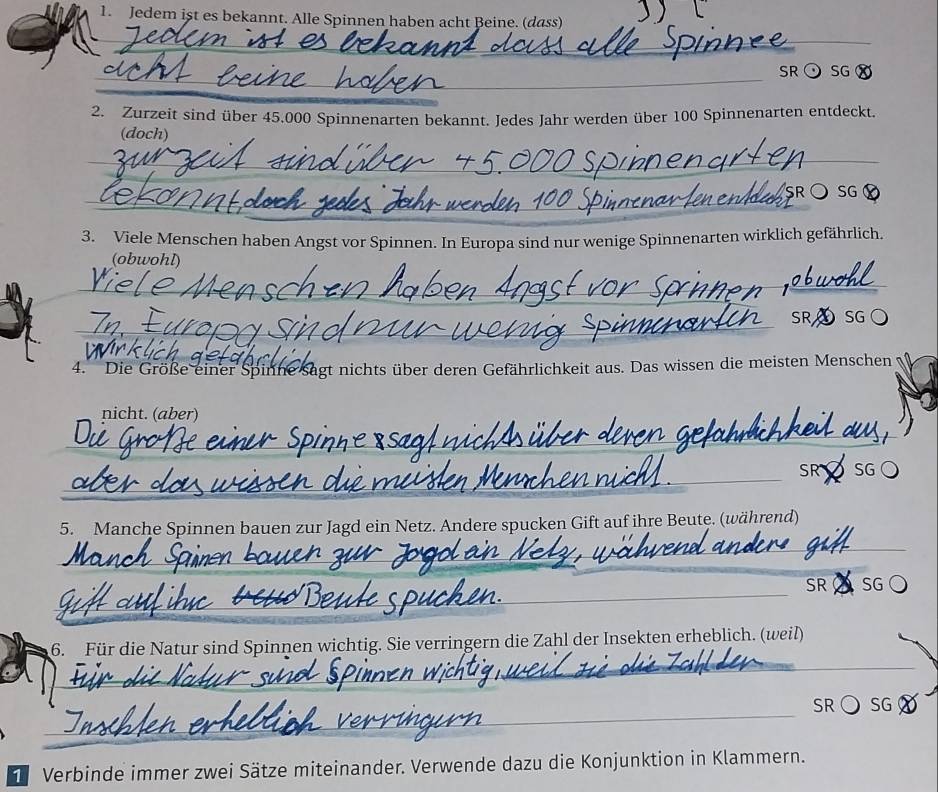 1. Jedem ist es bekannt. Alle Spinnen haben acht Beine. (dass)
Jedem ist es bekannt dass alle Spinnee
acht beine haben
SR SG
2. Zurzeit sind über 45.000 Spinnenarten bekannt. Jedes Jahr werden über 100 Spinnenarten entdeckt.
(doch)
zurzeit sind über 45.000 spinnenarten
bekannt, doch jedes Jahr werden 100 Spinnenarten entdeckt SR SG
3. Viele Menschen haben Angst vor Spinnen. In Europa sind nur wenige Spinnenarten wirklich gefährlich.
(obwohl)
Viele Menschen haben Angst vor Sprinnen, obwohl
In Europa sind nur wenig spinnenarten SR SG
wirklich gefährlich
4. Die Größe einer Spinne sagt nichts über deren Gefährlichkeit aus. Das wissen die meisten Menschen
nicht. (aber)
Die Große einer Spinne sagt nichts über deren gefahrlichkeit aus,
aber das wissen die meisten Menschen nicht.
SR SG
5. Manche Spinnen bauen zur Jagd ein Netz. Andere spucken Gift auf ihre Beute. (während)
Manch Spinnen bauen zur Jagd ein Netz, während andere gift
gift auf ihre Beute spucken.
SR SG
6. Für die Natur sind Spinnen wichtig. Sie verringern die Zahl der Insekten erheblich. (weil)
Für die Natur sind Spinnen wichtig, weil sie die Zahl der
Insekten erheblich verringern
SR SG
1 Verbinde immer zwei Sätze miteinander. Verwende dazu die Konjunktion in Klammern.